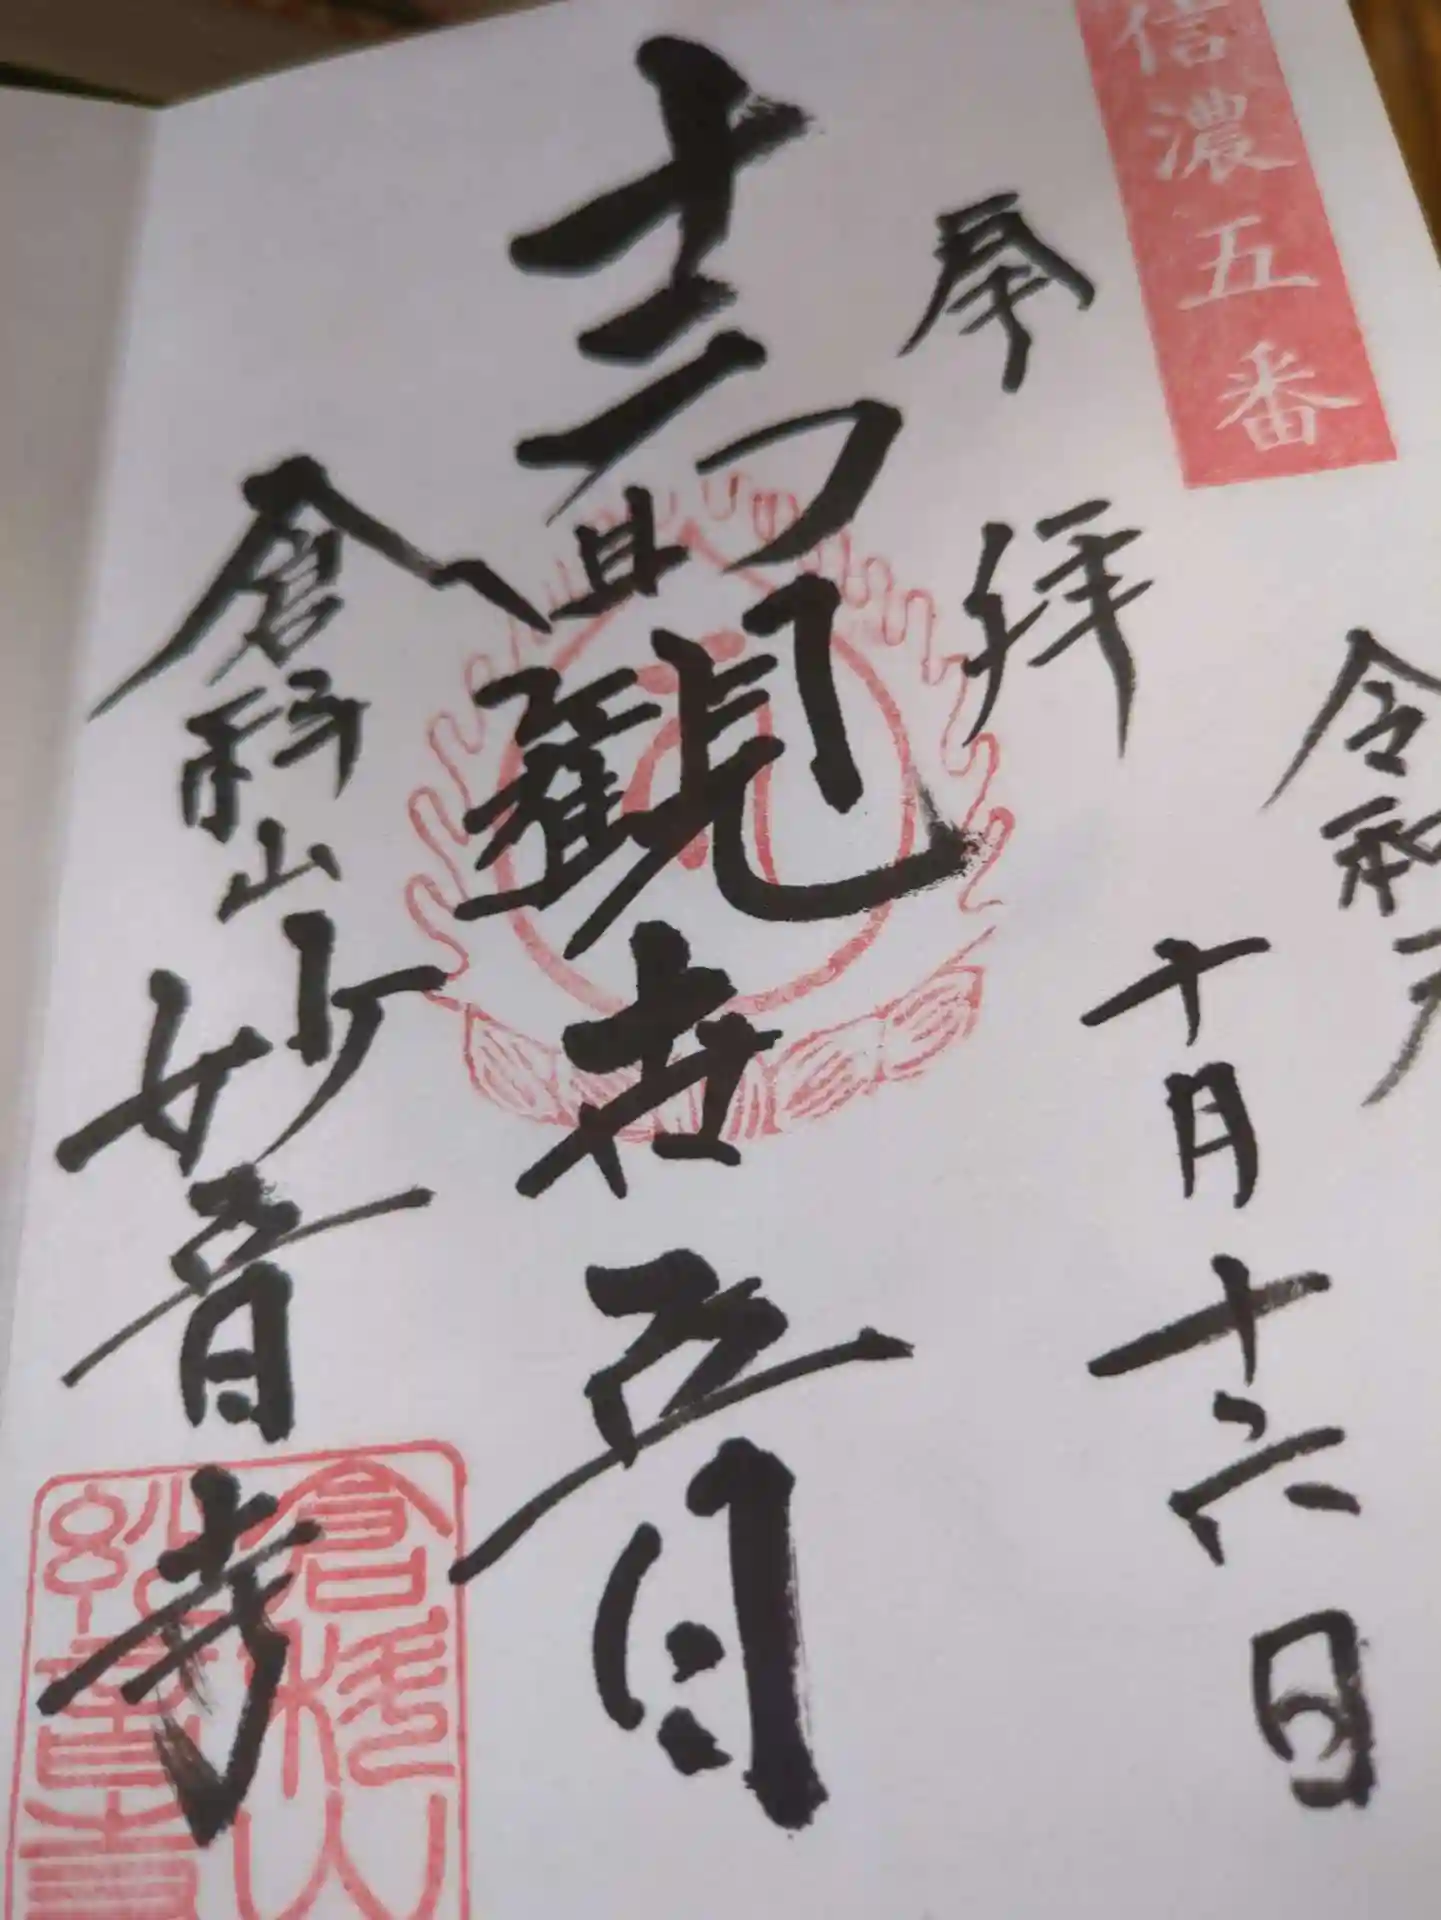 信濃五番
奉拝
令和
十月十六日
十一面觀世音
倉科山妙音寺